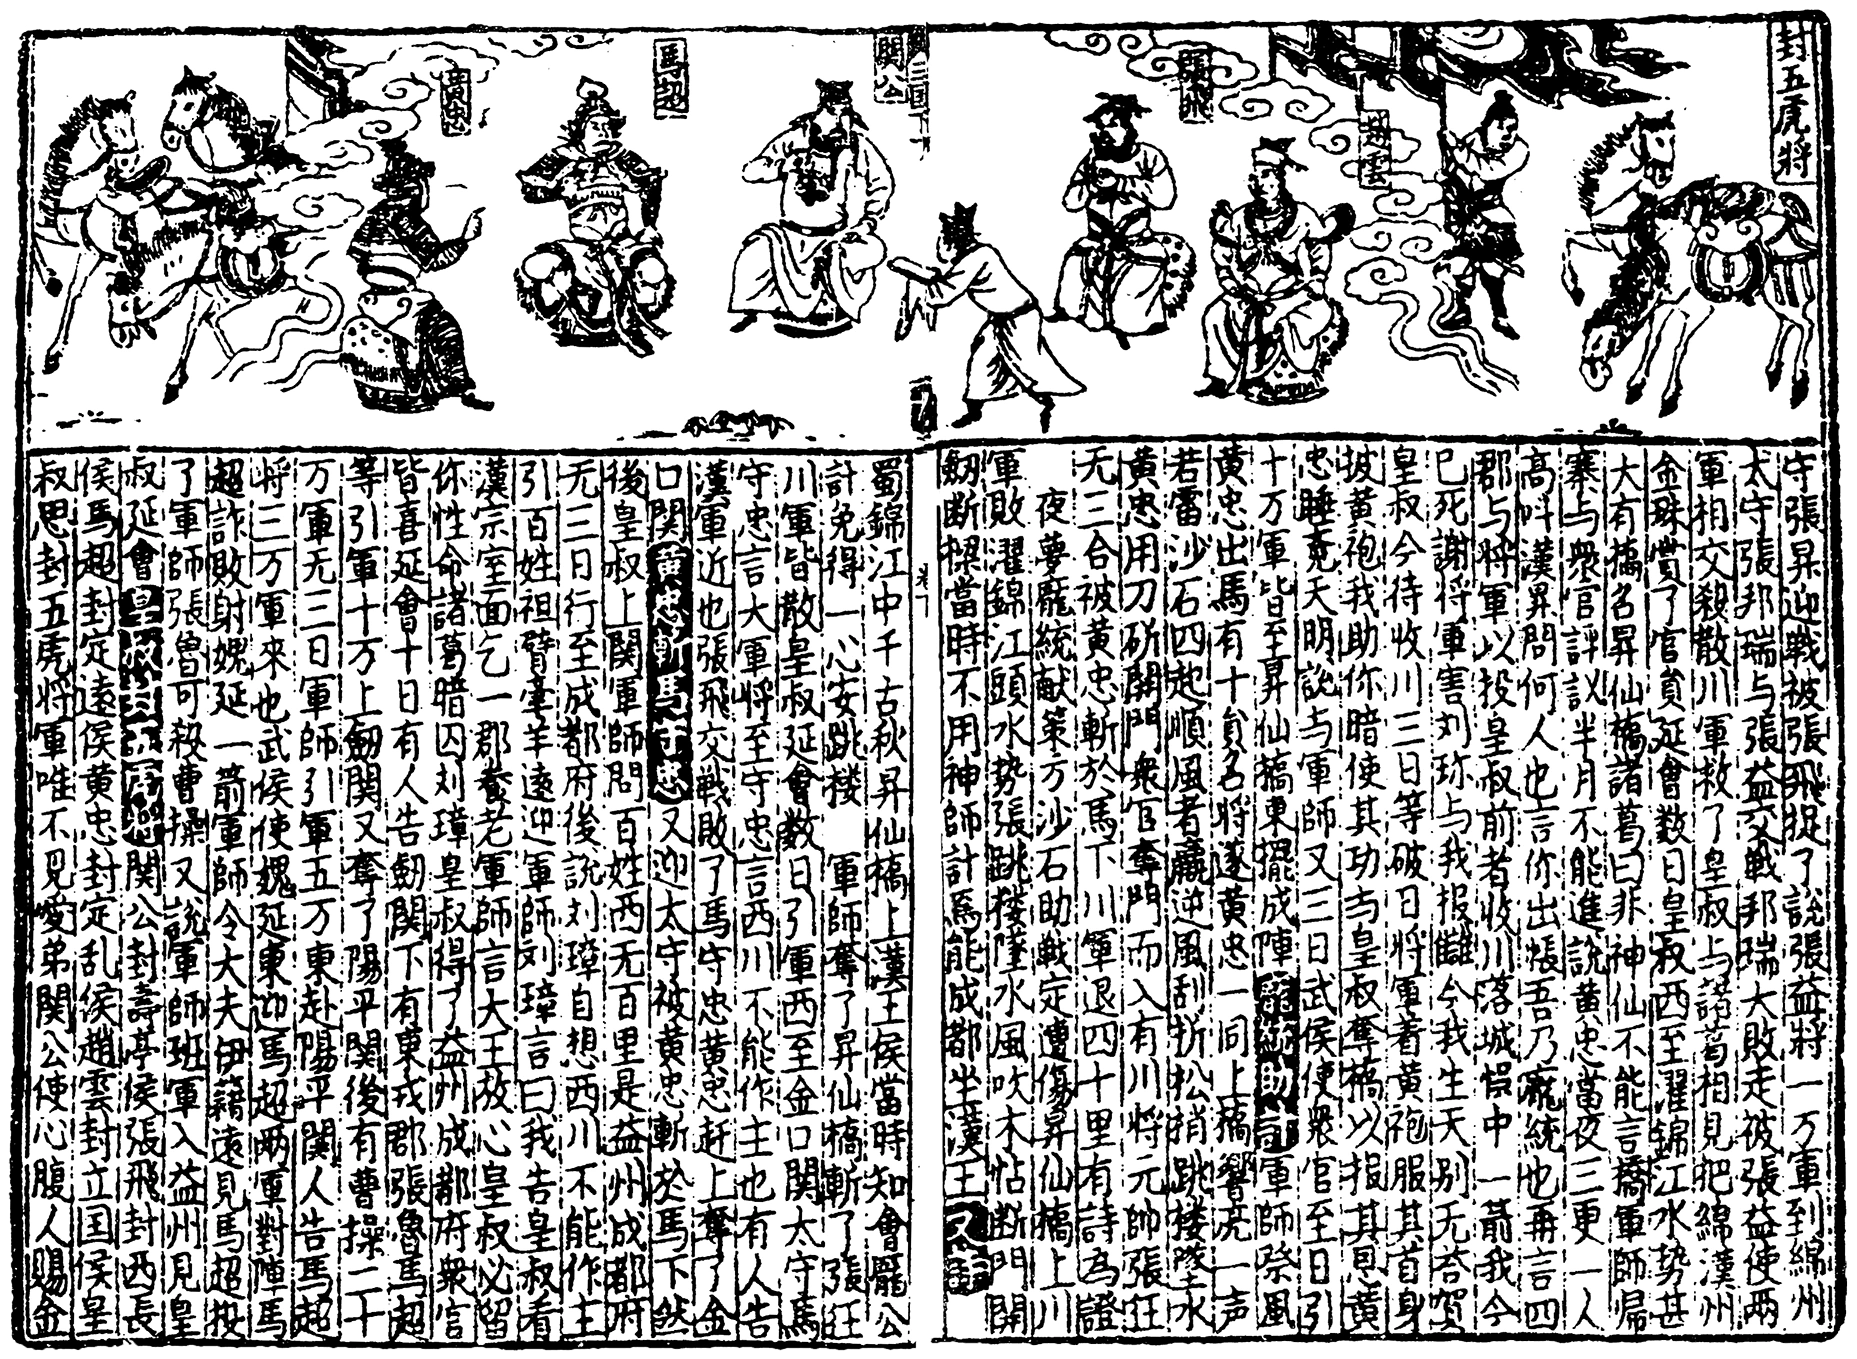 封五虎將
趙雲
張飛
関公
馬超
黃忠
守張昇迎戰被張飛捉了說張益將一万軍到綿州
太守張邦瑞与張益交戰邦瑞大敗走被張益使両
軍相交殺散川軍救了皇叔与諸葛相見把綿漢州
金珠賞了官員延會数日皇叔西至濯錦江水势甚
大有橋名昇仙橋諸葛曰非神仙不能言橋軍師帰
寨与衆官評議半月不能進說黄忠當夜三更一人
高呌漢昇問何人也言你出帳吾乃龐統也再言四
郡与将軍以投皇叔前者收川落城悞中一箭我今
已死謝将軍害刘珎与我报讎今我生天别无荅賀
皇叔今待收川三日等破日将軍着黄袍服其首身
披黄袍我助你暗使其功与皇叔奪橋以报其恩黄
忠睡竟天明說与軍師又三日武侯使衆官至日引
十万軍皆至昇仙橋東擺成陣龐統助計軍師祭風
黄忠出馬有十員名将遂黄忠一同上橋響亮一声
若雷沙石四起順風者贏逆風刮折松梢跳楼墜水
黄忠用刀斫開門衆官奪門而入有川将元帅張任
无三合被黄忠斬於馬下川軍退四十里有詩為證
夜夢龐統献策方沙石助戰定遭傷昇仙橋上川
軍敗濯錦江頭水势張跳楼墜水風吹木帖断門開
劒断樑當時不用神師計焉能成都坐漢王又詩
蜀錦江中千古秋昇仙橋上漢王侯當時知會龐公
計免得一心安跳楼 軍師奪了昇仙橋斬了張任
川軍皆散皇叔延會数日引軍西至金口関太守馬
守忠言大軍将至守忠言西川不能作主也有人告
漢軍近也張飛交戰敗了馬守忠黄忠赶上奪了金
口関黄忠斬馬守忠又迎太守被黄忠斬於馬下然
後皇叔上関軍師問百姓西无百里是益州成都府
无三日行至成都府後說刘璋自想西川不能作主
引百姓袒臂牽羊遠迎軍師刘璋言曰我告皇叔看
漢宗室面乞一郡養老軍師言大王放心皇叔必留
你性命諸葛暗囚刘璋皇叔得了益州成都府衆官
皆喜延會十日有人告劒関下有東戎郡張魯馬超
等引軍十万上劒関又奪了陽平関後有曹操二十
万軍无三日軍師引軍五万東赴陽平関人告馬超
将三万軍來也武侯使魏延東迎馬超両軍對陣馬
超詐敗射魏延一箭軍師令大夫伊籍遠見馬超按
了軍師張魯可殺曹操又說軍師班軍入益州見皇
叔延會皇叔封五虎將関公封壽亭侯張飛封西長
侯馬超封定遠侯黄忠封定乱侯趙雲封立国侯皇
叔思封五虎将軍唯不見愛弟関公使心腹人賜金